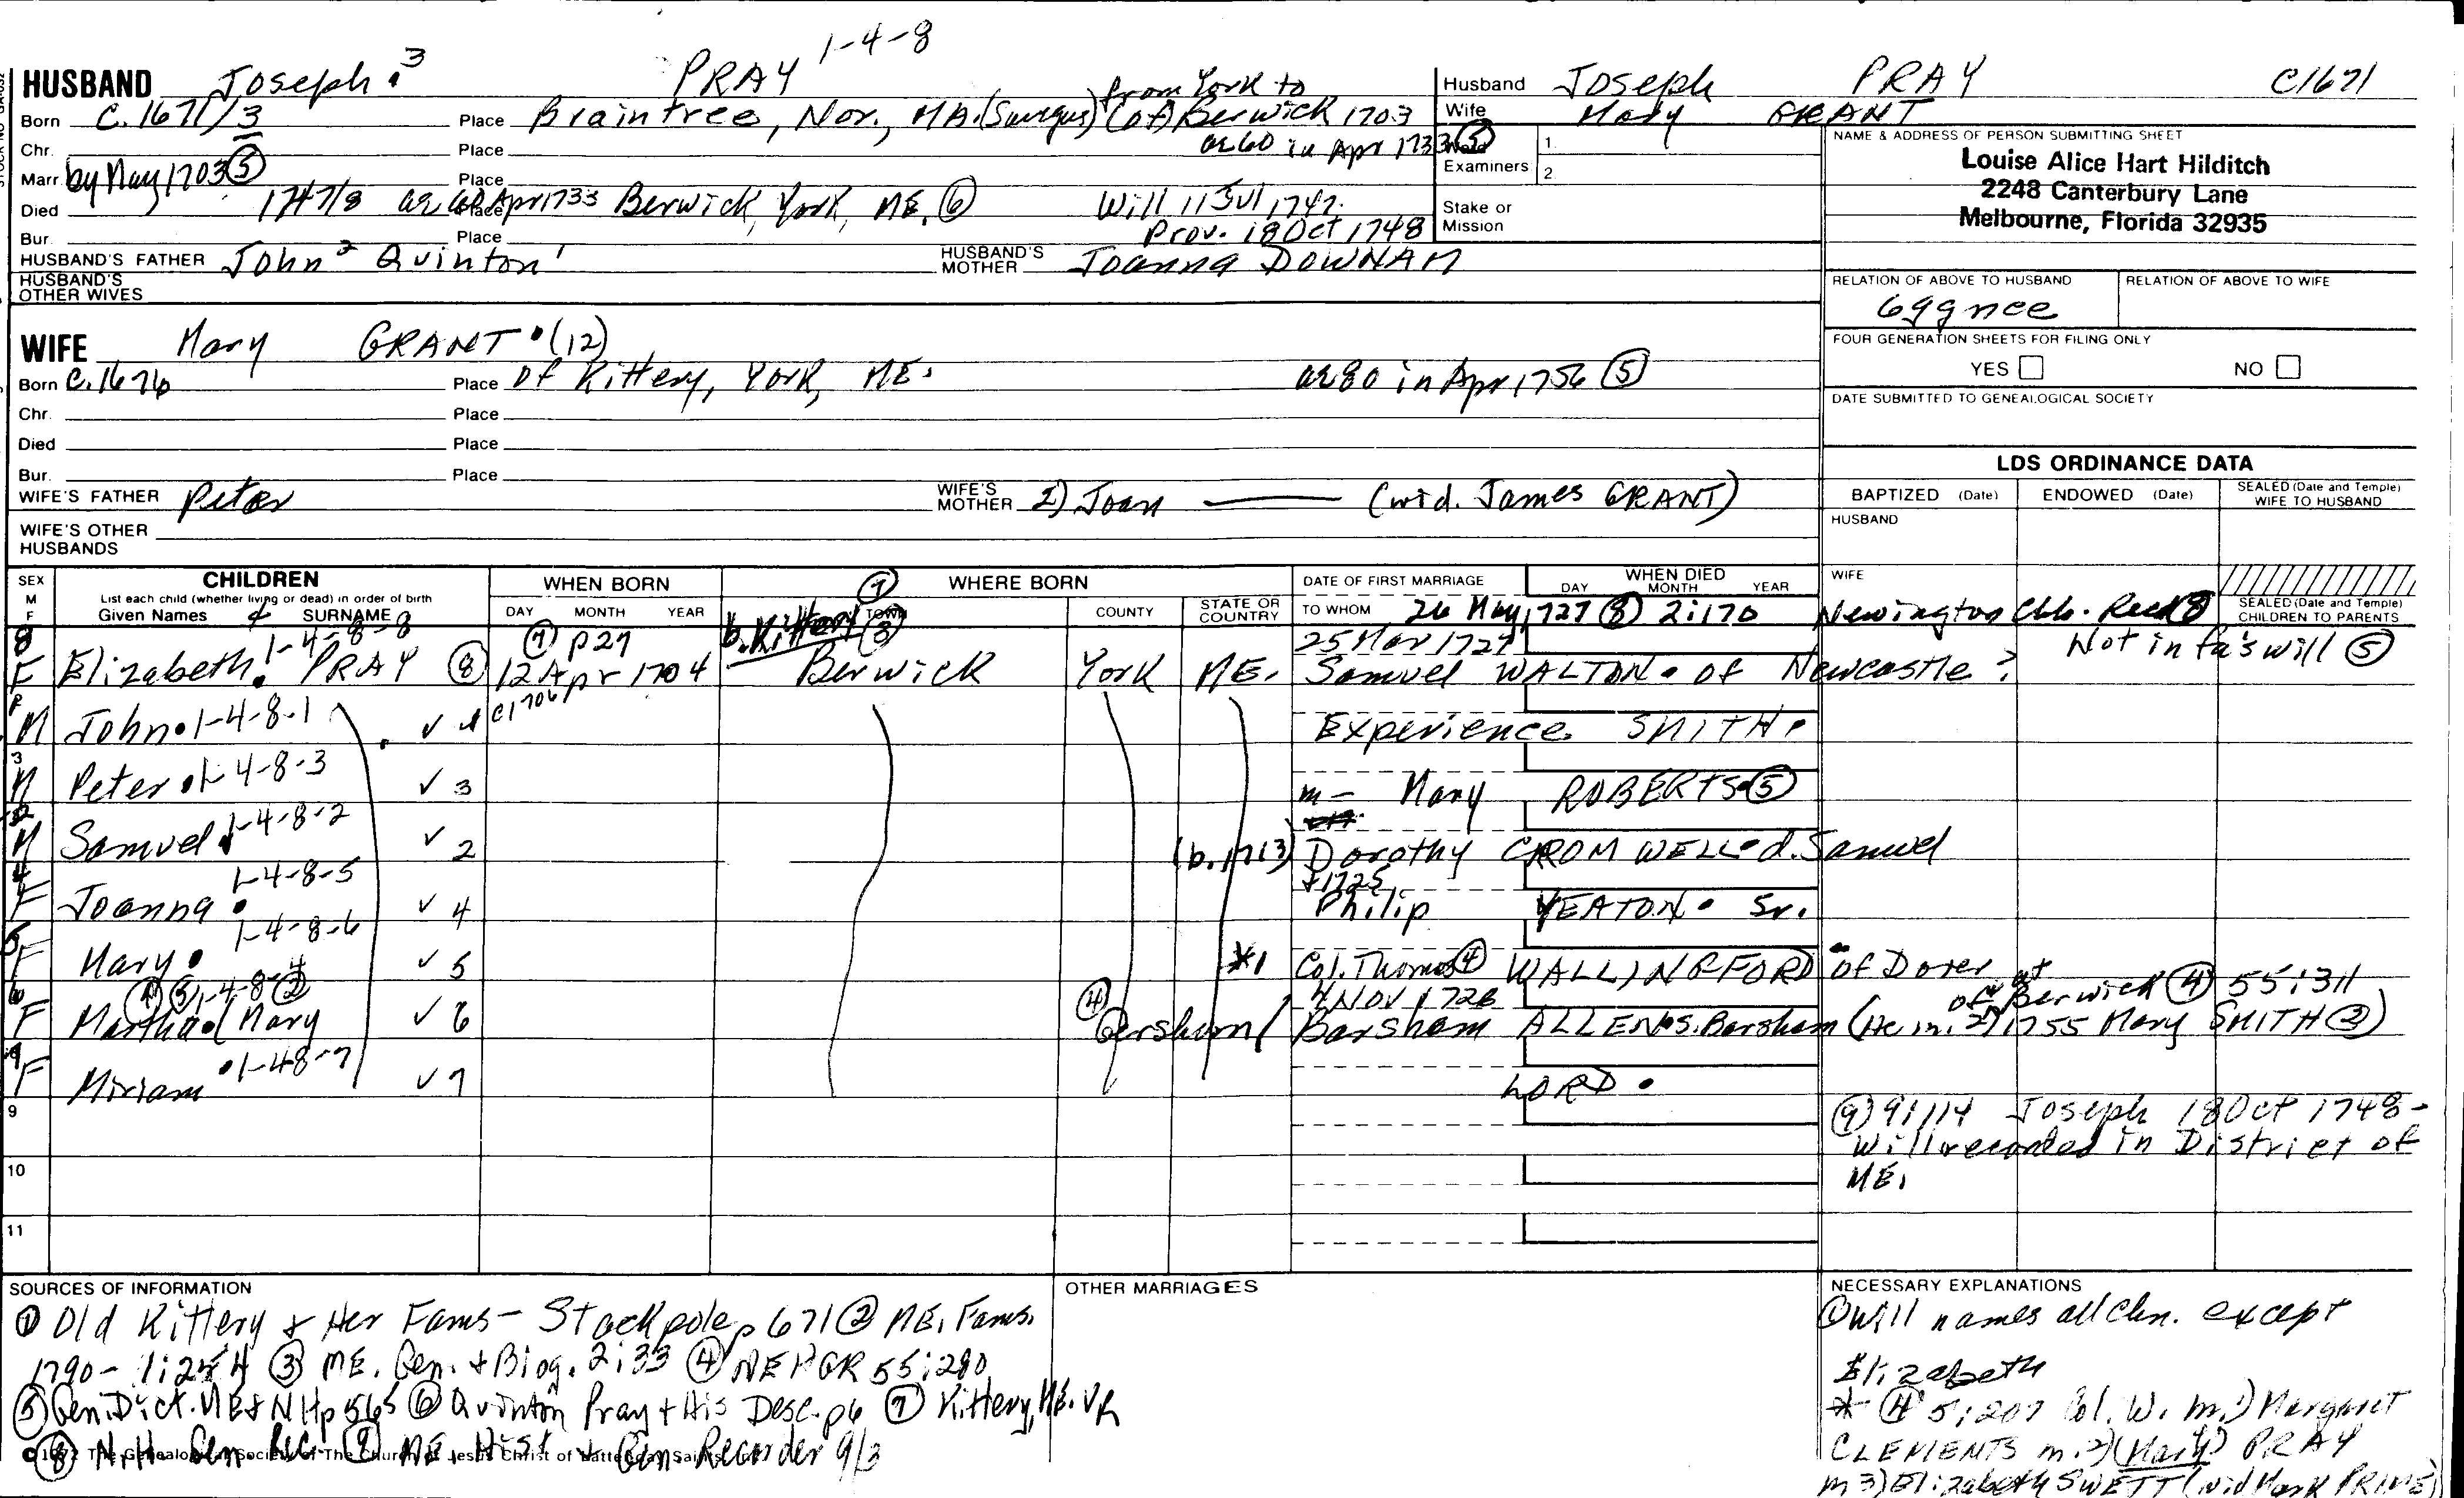 1-4-8
HUSBAND Joseph.3 PRAY
Born C. 1671/3 Place Braintree, Nor., MA. (Saugus) (of) Berwick 1703 from York to
Chr. Place ae 60 in Apr 1733 (5)
Marr. by May 1703 (5) Place
Died 1747/8 ae 60 Apr 1733 Place Berwick, York, ME. (6) Will 11 Jul 1747.
Bur. Place Prov. 18 Oct 1748
HUSBAND'S FATHER John2 Quinton1 HUSBAND'S MOTHER Joanna DOWNAM
HUSBAND'S OTHER WIVES
Husband Joseph PRAY C1671
Wife Mary GRANT
Ward Examiners 1. 2.
Stake or Mission
NAME & ADDRESS OF PERSON SUBMITTING SHEET
Louise Alice Hart Hilditch
2248 Canterbury Lane
Melbourne, Florida 32935
RELATION OF ABOVE TO HUSBAND RELATION OF ABOVE TO WIFE
6ggnce
FOUR GENERATION SHEETS FOR FILING ONLY
YES NO
DATE SUBMITTED TO GENEALOGICAL SOCIETY
WIFE Mary GRANT • (12)
Born C. 1676 Place of Kittery, York, ME. ae 80 in Apr 1756 (5)
Chr. Place
Died Place
Bur. Place
WIFE'S FATHER Peter WIFE'S MOTHER 2) Joan — (wid. James GRANT)
WIFE'S OTHER HUSBANDS
LDS ORDINANCE DATA
BAPTIZED (Date) ENDOWED (Date) SEALED (Date and Temple) WIFE TO HUSBAND
HUSBAND
WIFE
SEALED (Date and Temple) CHILDREN TO PARENTS
SEX M F CHILDREN List each child (whether living or dead) in order of birth Given Names SURNAME
WHEN BORN DAY MONTH YEAR
(7) WHERE BORN TOWN COUNTY STATE OR COUNTRY
DATE OF FIRST MARRIAGE TO WHOM
WHEN DIED DAY MONTH YEAR
26 May 1727 (8) 2:170 Newington Chh. Recd (8)
8 1-4-8-8 (7) p27 b. Kittery (3) 25 Mar 1727 Not in fa's will (5)
F Elizabeth. PRAY (8) 12 Apr 1704 Berwick York ME. Samuel WALTON. of Newcastle ?
M John • 1-4-8-1 ✓ 1 C1706 Experience SMITH.
3 M Peter • 1-4-8-3 ✓ 3 m— Mary ROBERTS (5)
2 M Samuel 1-4-8-2 ✓ 2 (b. 1713) Dorothy CROMWELL • d. Samuel
4 F Joanna • 1-4-8-5 ✓ 4 +1725 Philip YEATON • Sr.
5 F Mary • 1-4-8-6 ✓ 5 *1 Col. Thomas (4) WALLINGFORD of Dover
6 F Martha • (Mary (1) (5) 1-4-8-4 (2) ✓ 6 (4) Gershom / 4 Nov 1726 Barsham ALLEN • S. Barsham of Berwick (4) 55:311 (He m. 2) 1755 Mary SMITH (2))
F Miriam • 1-4-8-7 ✓ 7 LORD •
9
10
11
(9) 9:1114 Joseph 18 Oct 1748 -
Will recorded in District of
ME.
SOURCES OF INFORMATION
(1) Old Kittery & Her Fams - Stackpole p 671 (2) ME. Fams.
1790- (3) ME. Gen. + Biog. 2:33 (4) NEHGR 55:280
(5) Gen. Dict. ME + NH p 565 (6) Quinton Pray + His Desc. p6 (7) Kittery, ME. VR
(8) N.H. Gen. Rec. (9) ME Hist + Gen Recorder 9/3
© 1972 The Genealogical Society of The Church of Jesus Christ of Latter-day Saints
OTHER MARRIAGES
NECESSARY EXPLANATIONS
(1) Will names all Chn. except
Elizabeth
* (4) 5:207 Col. W. m. 1) Margaret
CLEMENTS m. 2) (Mary) PRAY
m 3) Elizabeth SWETT (wid Mark PRIME)